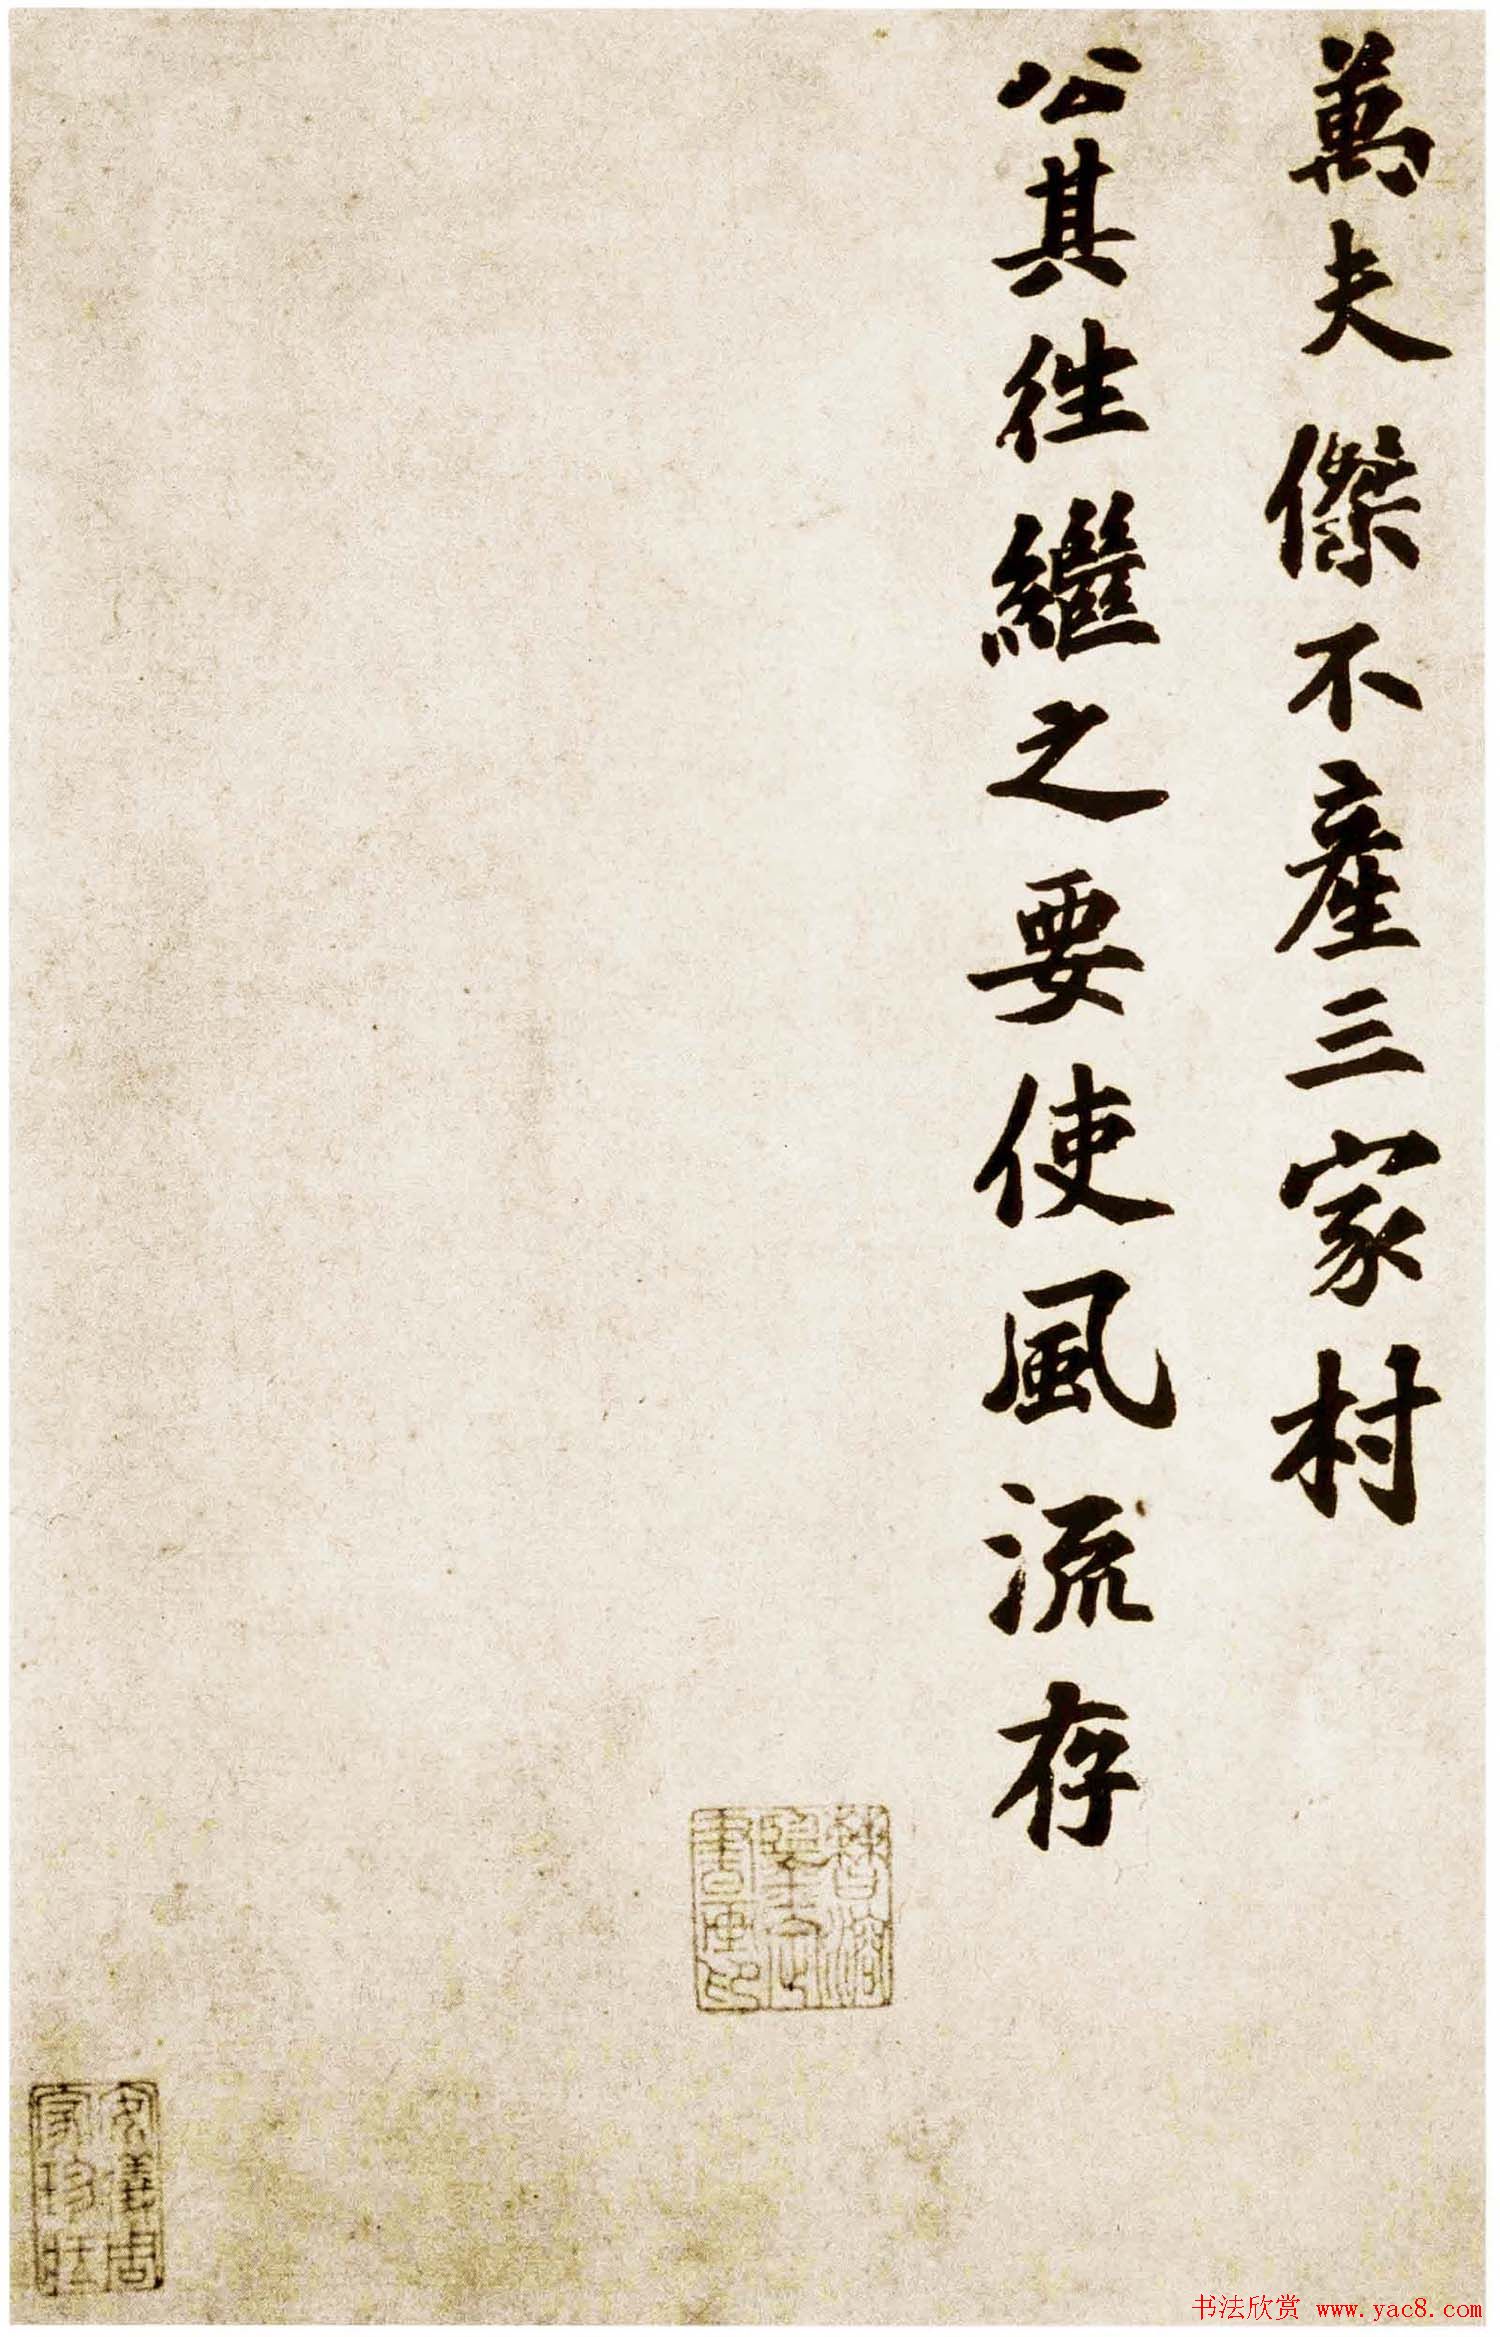 萬夫傑不產三家村
公其往繼之要使風流存
安儀周
家珍藏
书法欣赏 www.yac8.com